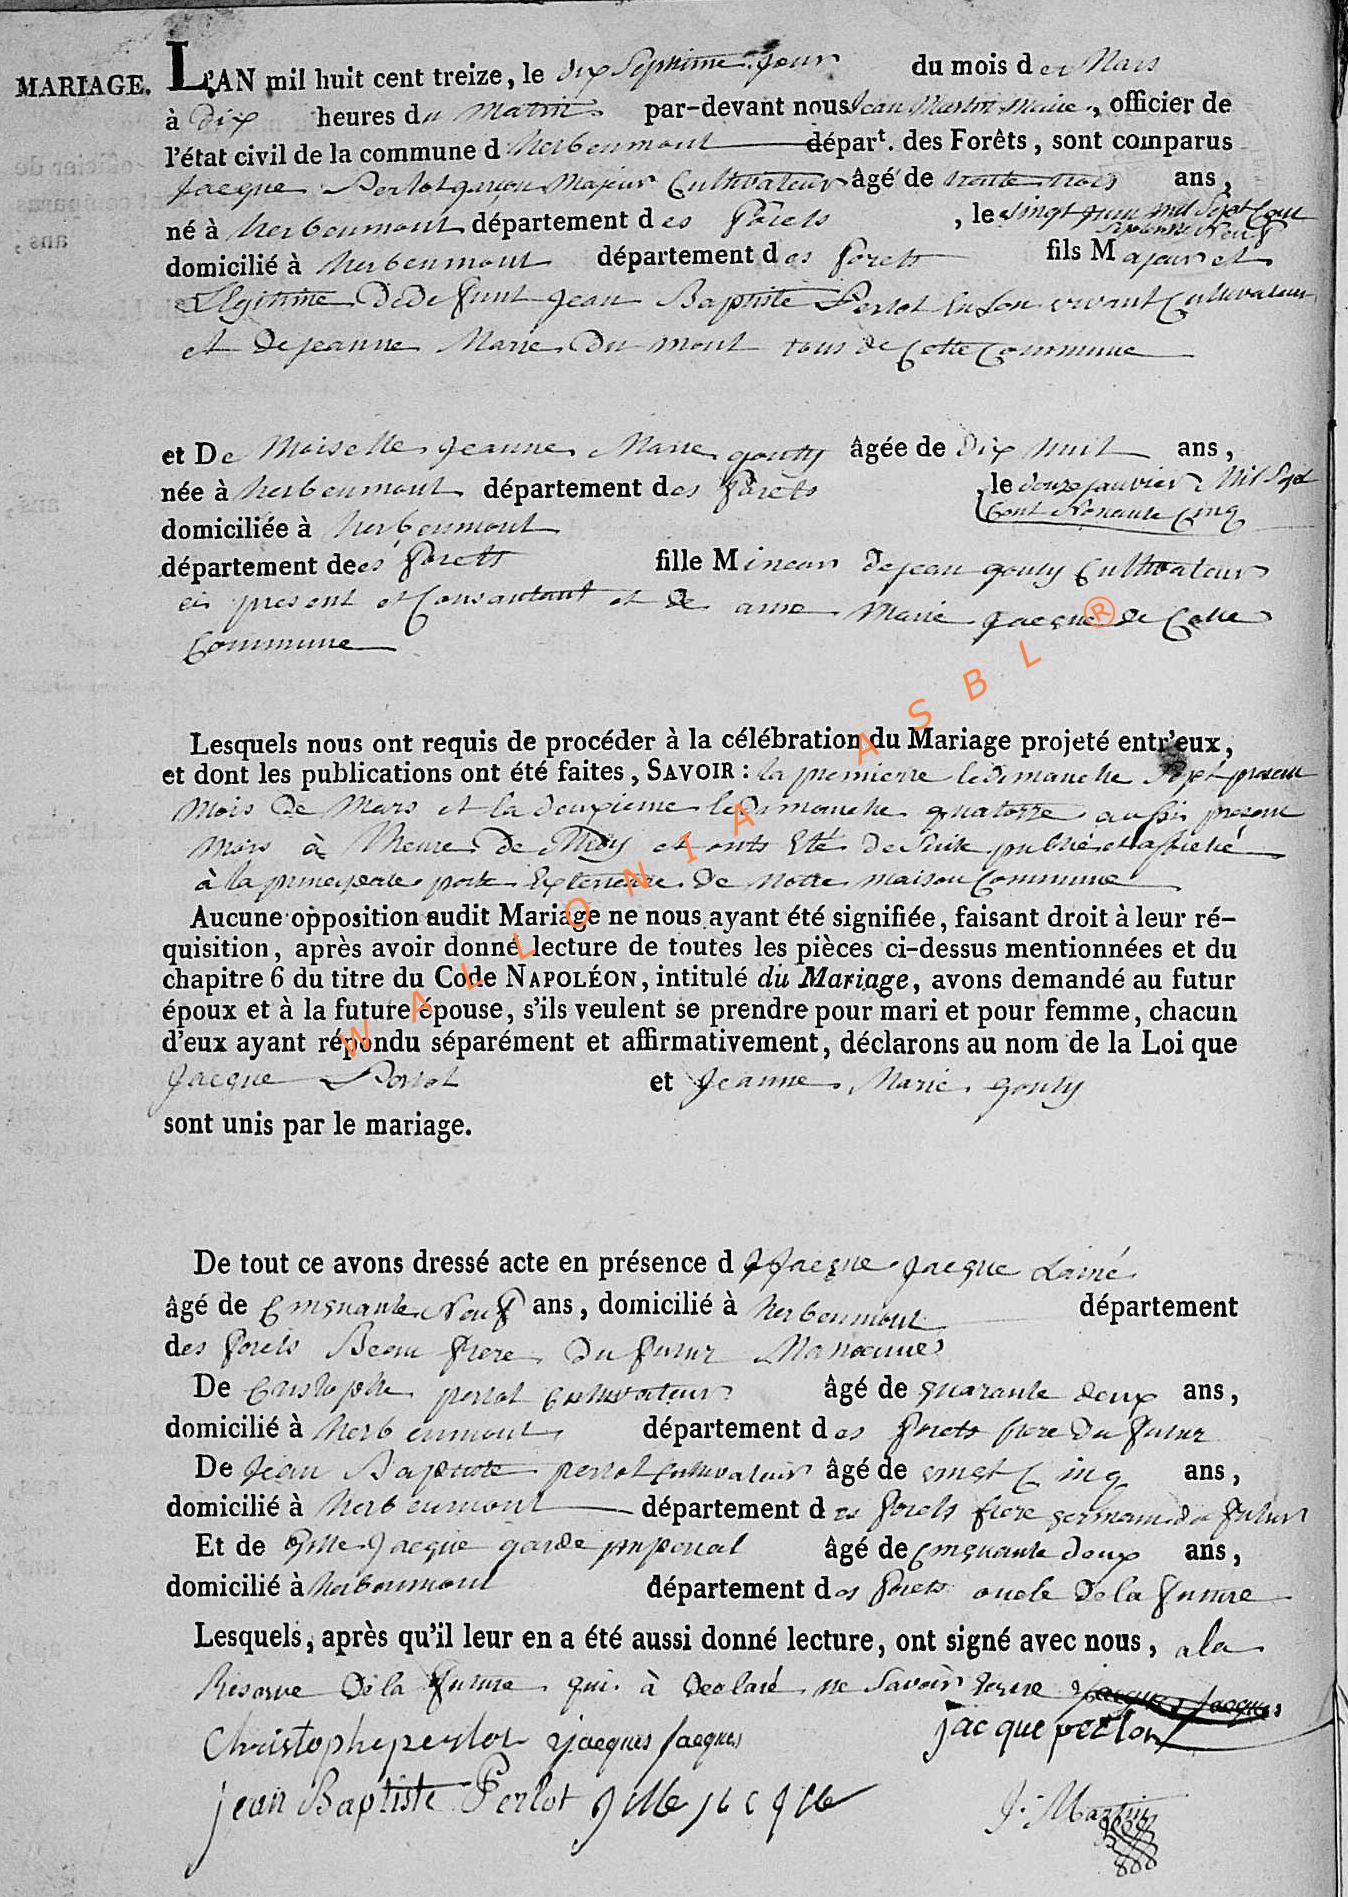 MARIAGE. L'AN mil huit cent treize, le dix Septieme jour du mois de Mars
à Dix heures du Matin par-devant nous Jean Martin Maire, officier de
l'état civil de la commune d'herbeumont départ. des Forêts, sont comparus
Jacque Perlot garçon Majeur Cultivateur âgé de trente trois ans,
né à herbeumont département des forêts, le vingt mil Sept Cent
Septante Neuf
domicilié à herbeumont département des forets fils Majeur et
Legitime De defunt Jean Baptiste Perlot en son vivant Cultivateur
et de jeanne Marie Du mont tous de Cette Commune
et De Moiselle Jeanne Marie gouty âgée de Dix huit ans,
née à herbeumont département des forêts, le douze janvier Mil Sept
Cent Nonante Cinq
domiciliée à herbeumont
département des forets fille Mineur de jean gouty Cultivateur
ci present et Consantant et de anne Marie Jacque de Cette
Commune
Lesquels nous ont requis de procéder à la célébration du Mariage projeté entr'eux,
et dont les publications ont été faites, SAVOIR : la premierre le dimanche Sept present
Mois de Mars et la deuxieme le dimanche quatorze aussi present
Mois à l'heure de Midy et onts Eté de Suite publié et afiché
à la principale porte Exterieure de notre maison Commune
Aucune opposition audit Mariage ne nous ayant été signifiée, faisant droit à leur ré-
quisition, après avoir donné lecture de toutes les pièces ci-dessus mentionnées et du
chapitre 6 du titre du Code NAPOLÉON, intitulé du Mariage, avons demandé au futur
époux et à la future épouse, s'ils veulent se prendre pour mari et pour femme, chacun
d'eux ayant répondu séparément et affirmativement, déclarons au nom de la Loi que
Jacque Perlot et Jeanne Marie gouty
sont unis par le mariage.
De tout ce avons dressé acte en présence d Jacque Jacque Lainé
âgé de Cinquante Neuf ans, domicilié à herbeumont département
des forets Beau frere Du futur
De Cristophe perlot Cultivateur âgé de quarante deux ans,
domicilié à herbeumont département des forets frere Du futur
De Jean Baptiste perlot Cultivateur âgé de vingt Cinq ans,
domicilié à herbeumont département des forets frere germain du futur
Et de Gille Jacque garde imperial âgé de Cinquante deux ans,
domicilié à herbeumont département des forets oncle De la future
Lesquels, après qu'il leur en a été aussi donné lecture, ont signé avec nous, a la
Reserve De la future qui à Declaré ne Savoir
Christophe perlot Jacques Jacques jacque perlot
jean Baptiste Perlot gille jacque J. Martin
WALLONIA ASBL ®